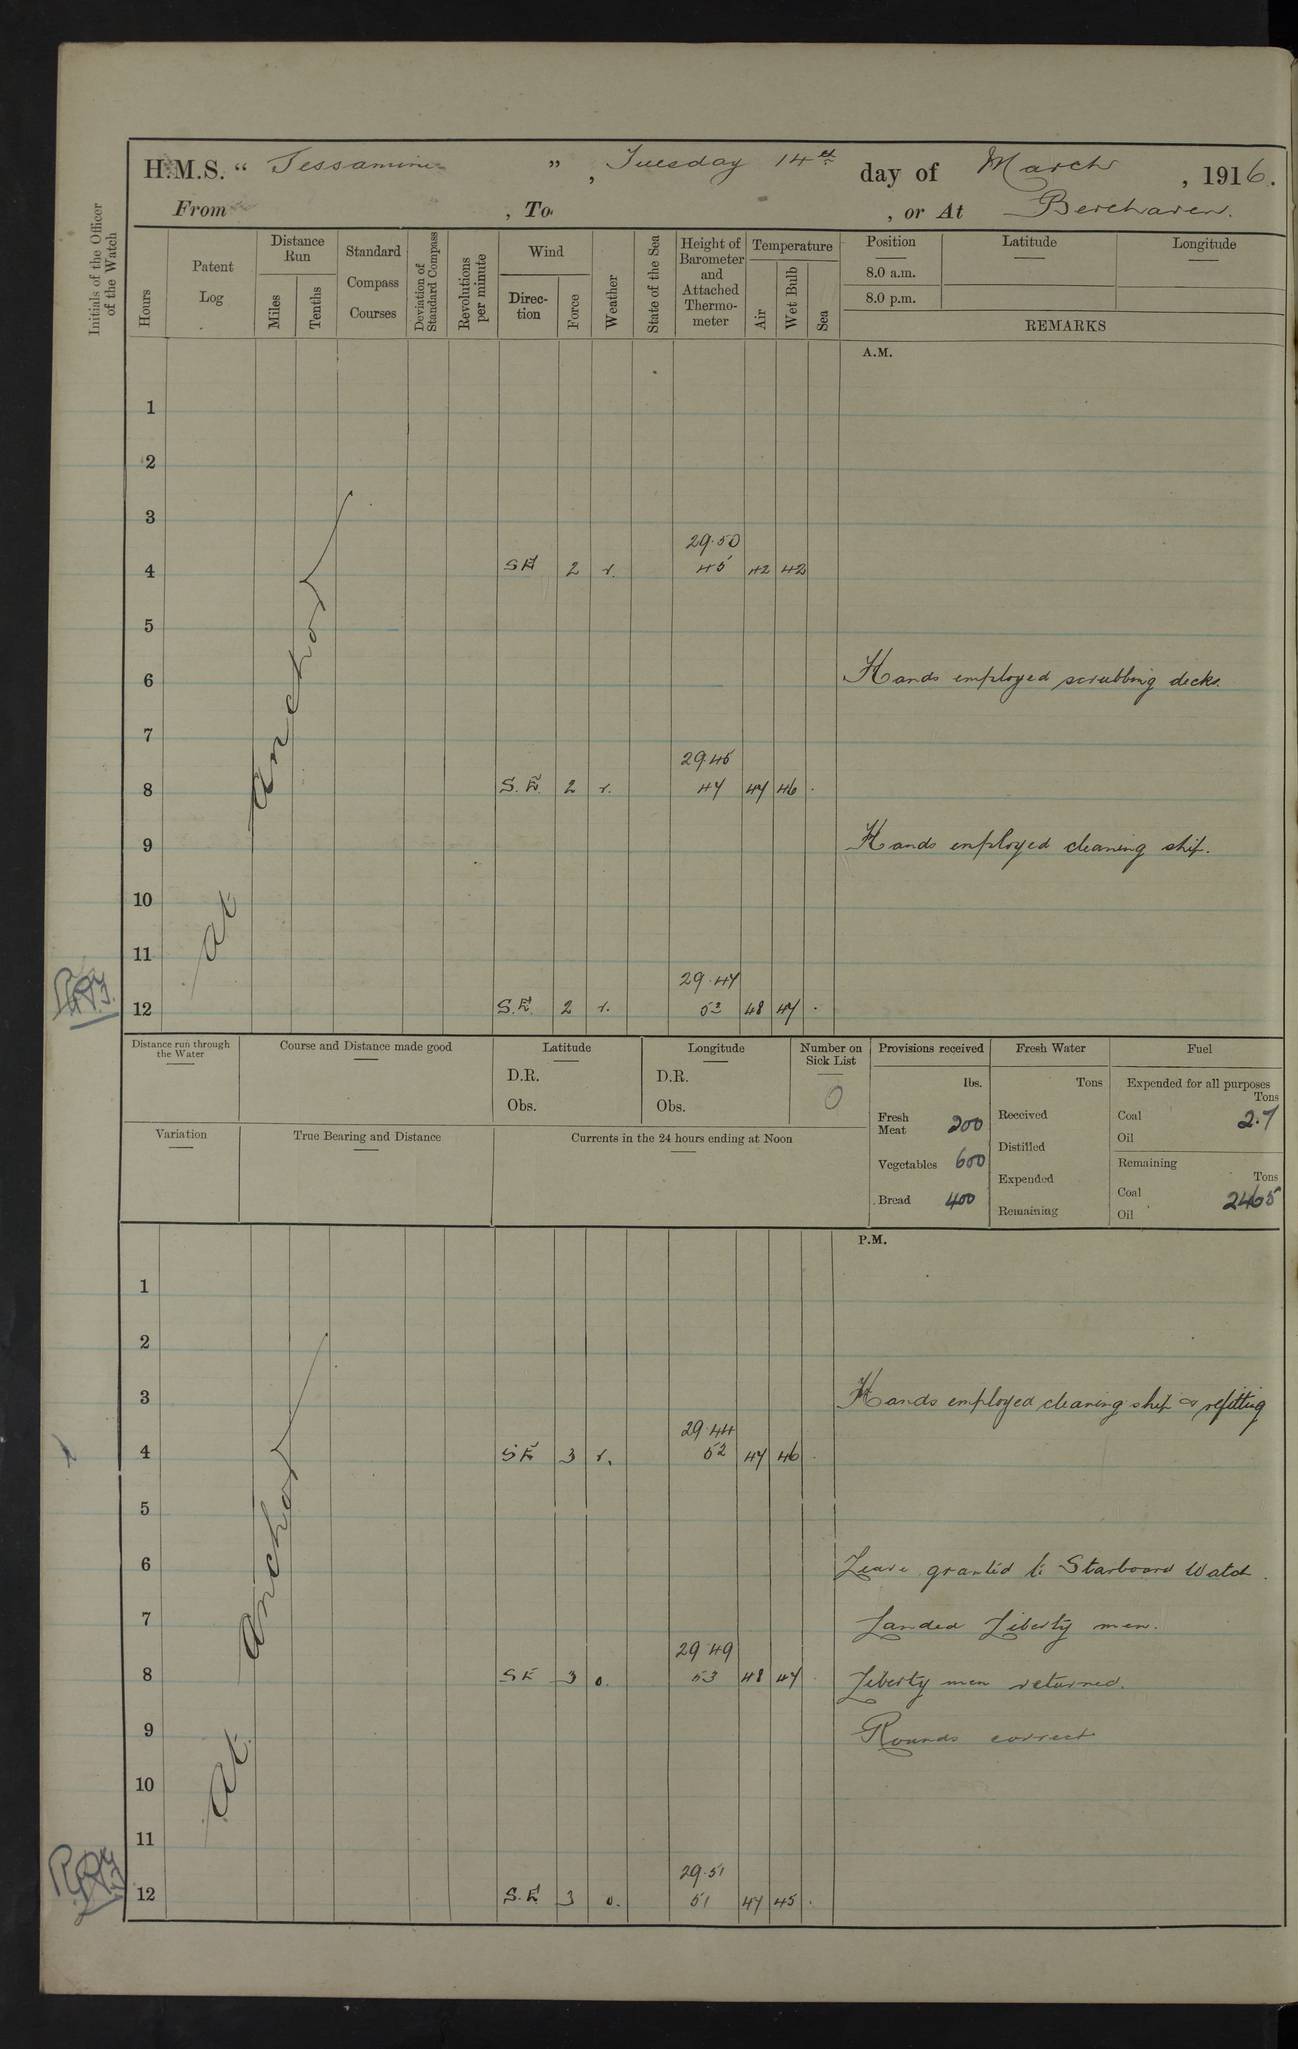 H.M.S. " Jessamine ", Tuesday 14th day of March, 1916.
From , To , or At Berehaven.
Initials of the Officer of the Watch
Hours
Patent Log
Distance Run
Miles
Tenths
Standard Compass Courses
Deviation of Standard Compass
Revolutions per minute
Wind
Direc-tion
Force
Weather
State of the Sea
Height of Barometer and Attached Thermo-meter
Temperature
Air
Wet Bulb
Sea
Position
8.0 a.m.
8.0 p.m.
Latitude
Longitude
REMARKS
A.M.
1
2
3
29.50
4 SE 2 r. 45 42 42
5
6 Hands employed scrubbing decks.
7
29 45
8 S.E. 2 r. 47 47 46
9 Hands employed cleaning ship.
10
11
29.47
12 S.E. 2 r. 53 48 47
At anchor
Distance run through the Water
Course and Distance made good
Latitude
D.R.
Obs.
Longitude
D.R.
Obs.
Number on Sick List
0
Variation
True Bearing and Distance
Currents in the 24 hours ending at Noon
Provisions received
lbs.
Fresh Meat 200
Vegetables 600
Bread 400
Fresh Water
Tons
Received
Distilled
Expended
Remaining
Fuel
Expended for all purposes
Tons
Coal 2.7
Oil
Remaining
Tons
Coal 246 5
Oil
P.M.
1
2
3 Hands employed cleaning ship & refitting
29.44
4 SE 3 r. 52 47 46
5
6 Leave granted to Starboard Watch.
7 Landed Liberty men.
29 49
8 SE 3 o. 53 48 47 Liberty men returned.
9 Rounds correct
10
11
29.51
12 S.E. 3 o. 51 47 45
At anchor